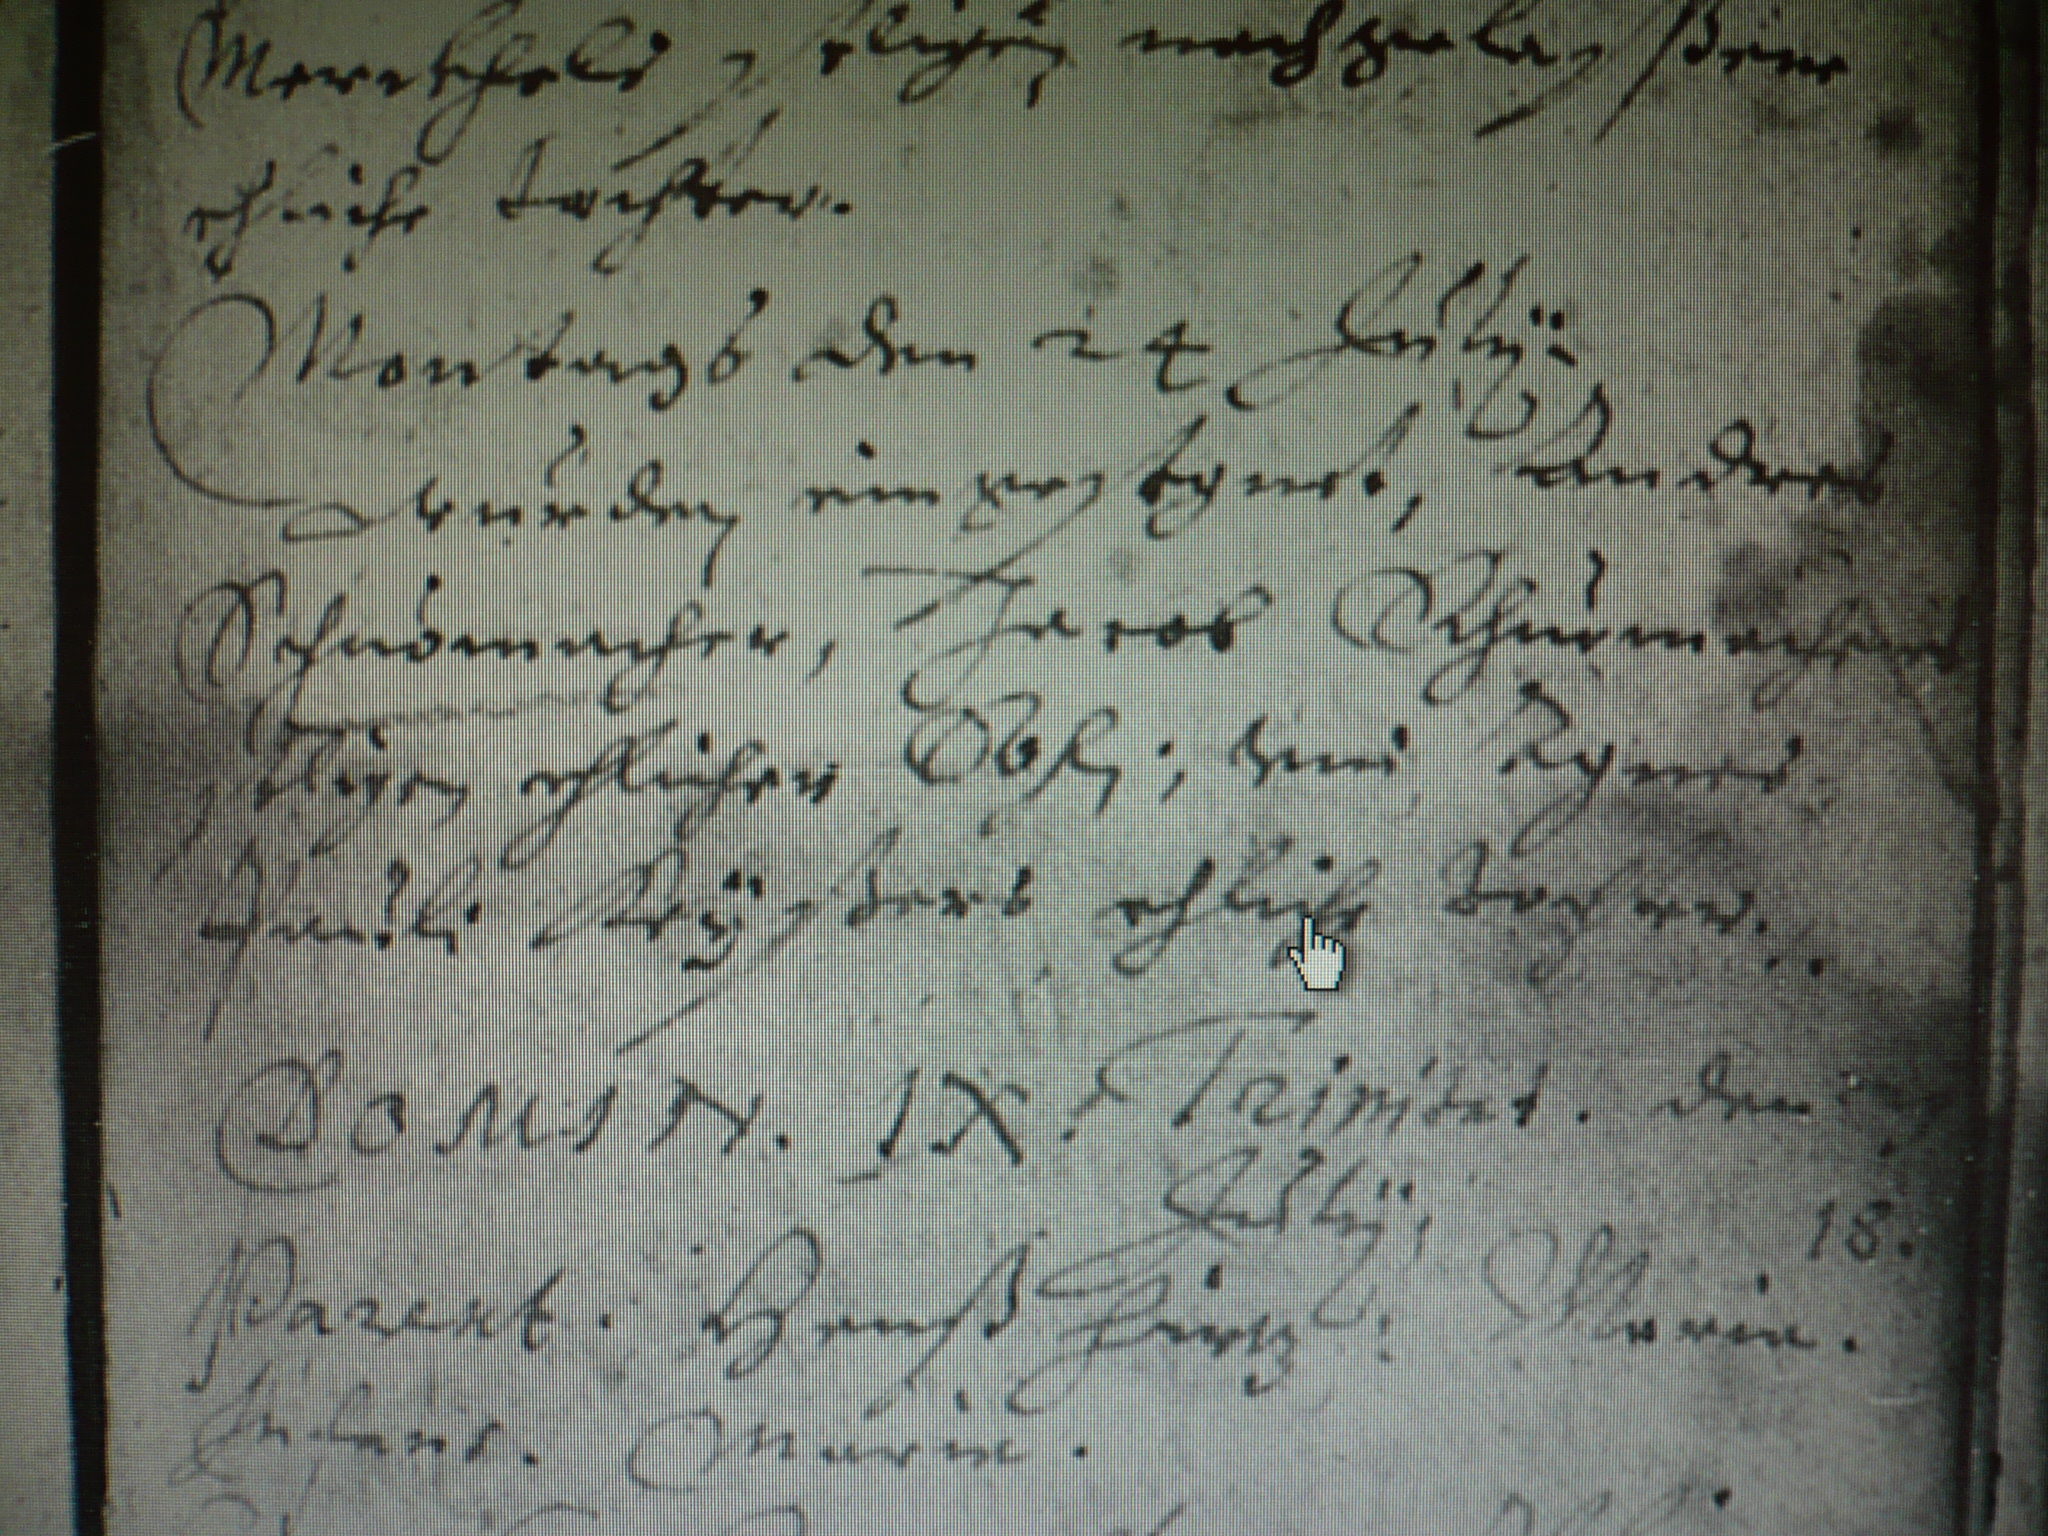 seeligen nachgelaßene
ehliche Tochter.
Montags den 24 Julij
wurden eingesegnet, Andres
Schumacher, Jacob Schumachers
seeligen ehlicher Sohn; und Agnes.
Pauli ehliche Tochter.
DOMIN. IX. Trinitat. den
Julij,
18.
Parent. Hanß Maria.
Infans. Maria.